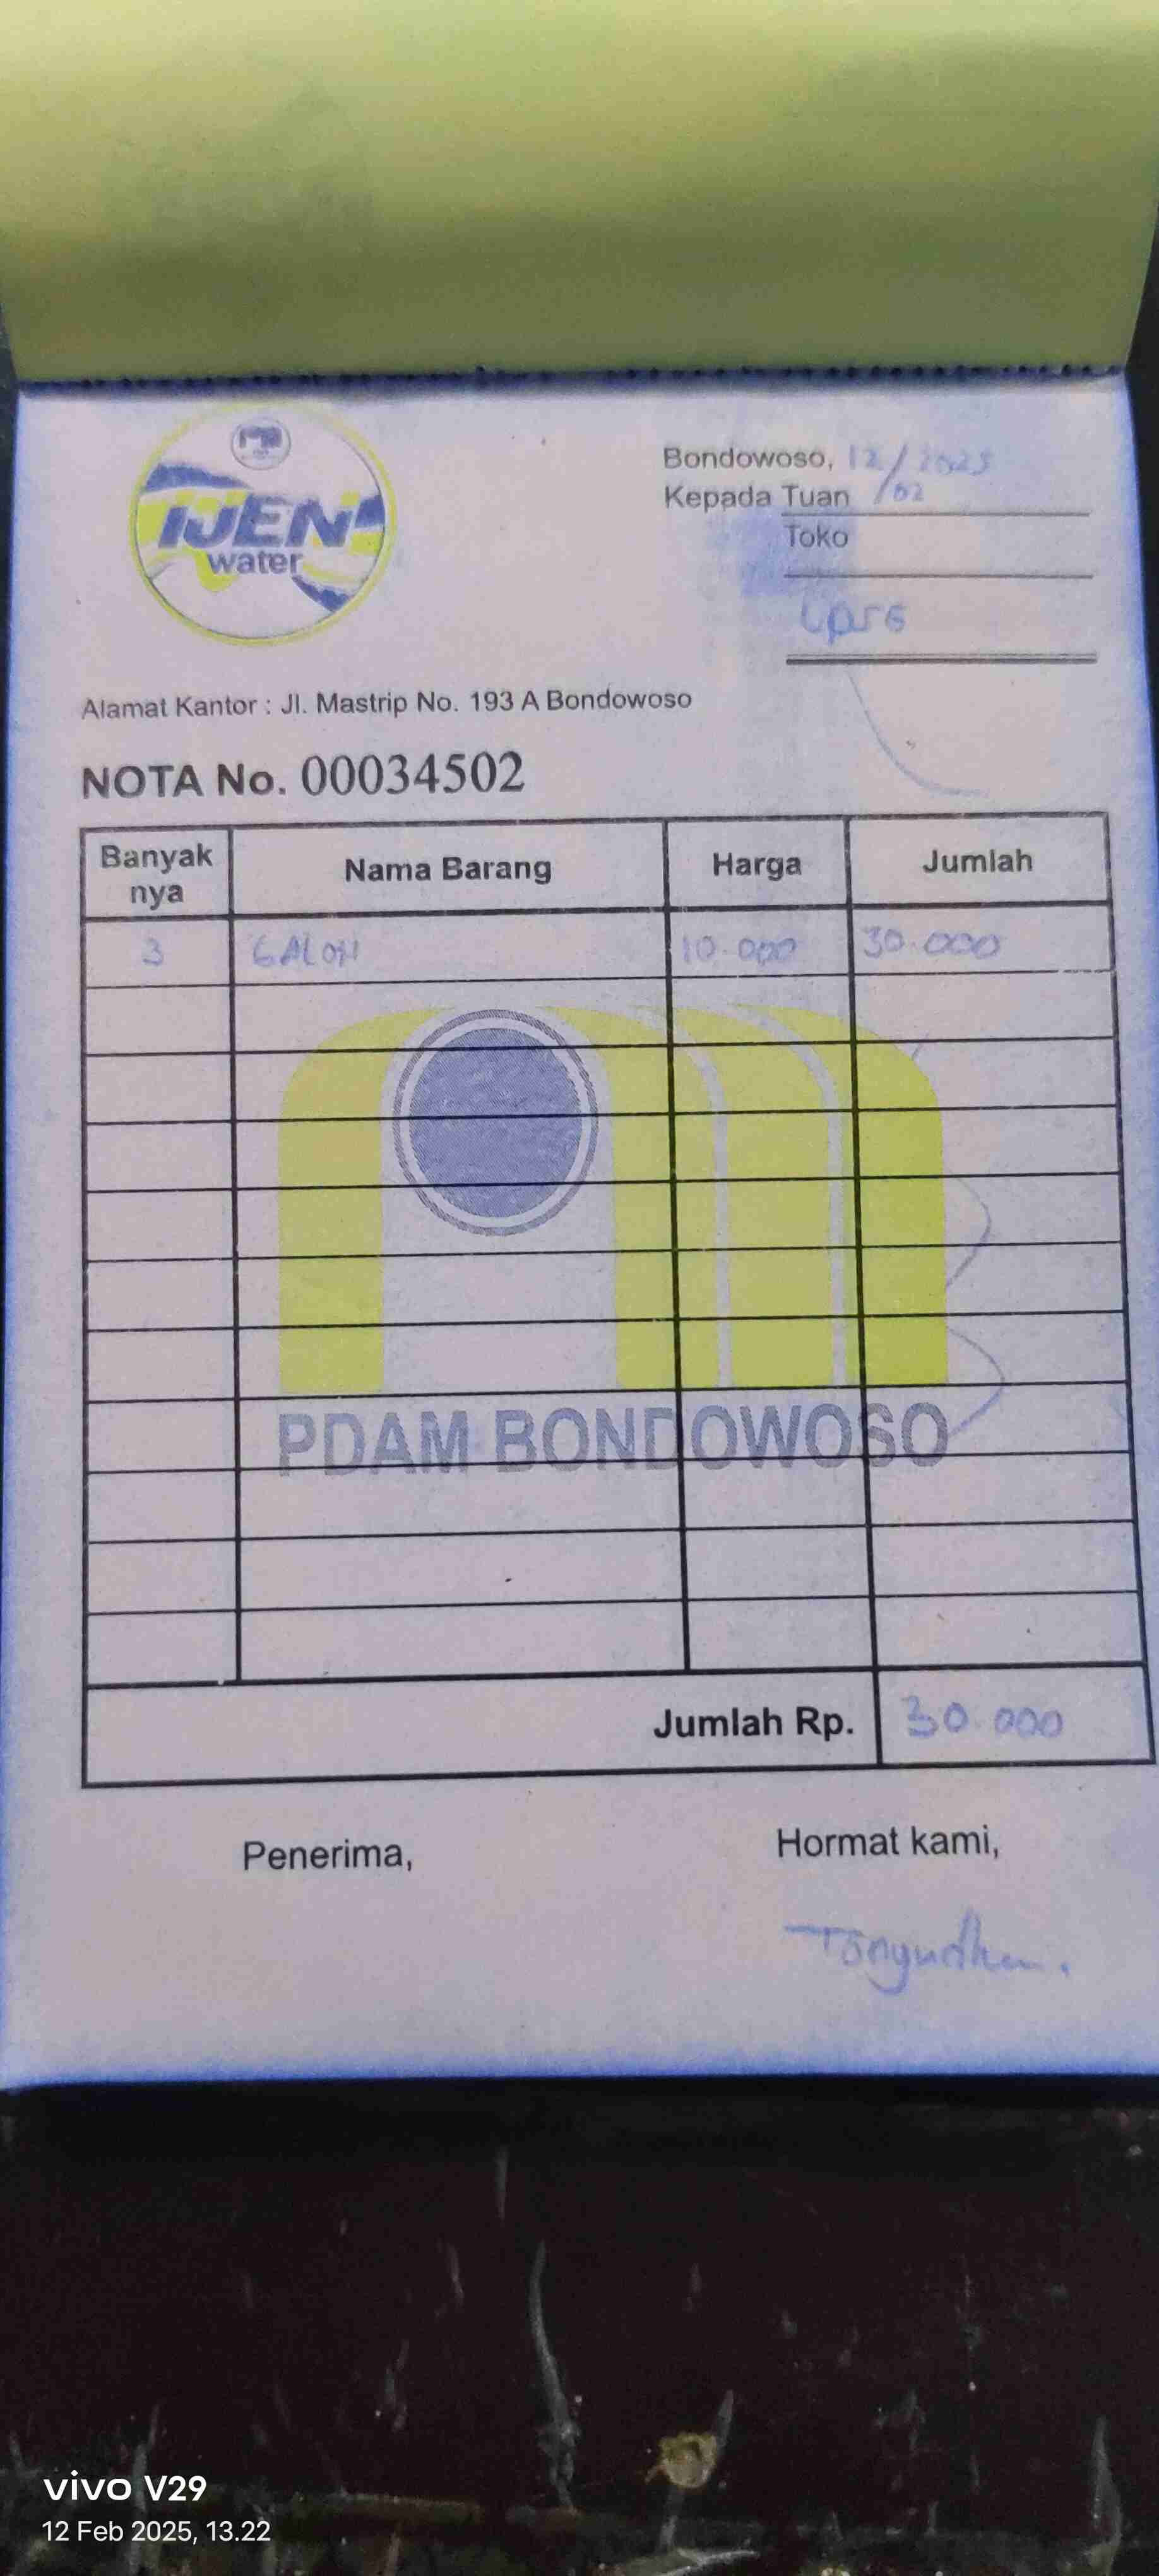 IJEN
water
Bondowoso, 12/02 2025
Kepada Tuan
Toko
Alamat Kantor : Jl. Mastrip No. 193 A Bondowoso
NOTA No. 00034502
Banyak nya Nama Barang Harga Jumlah
3 GALON 10.000 30.000
PDAM BONDOWOSO
Jumlah Rp. 30.000
Penerima, Hormat kami,
vivo V29
12 Feb 2025, 13.22